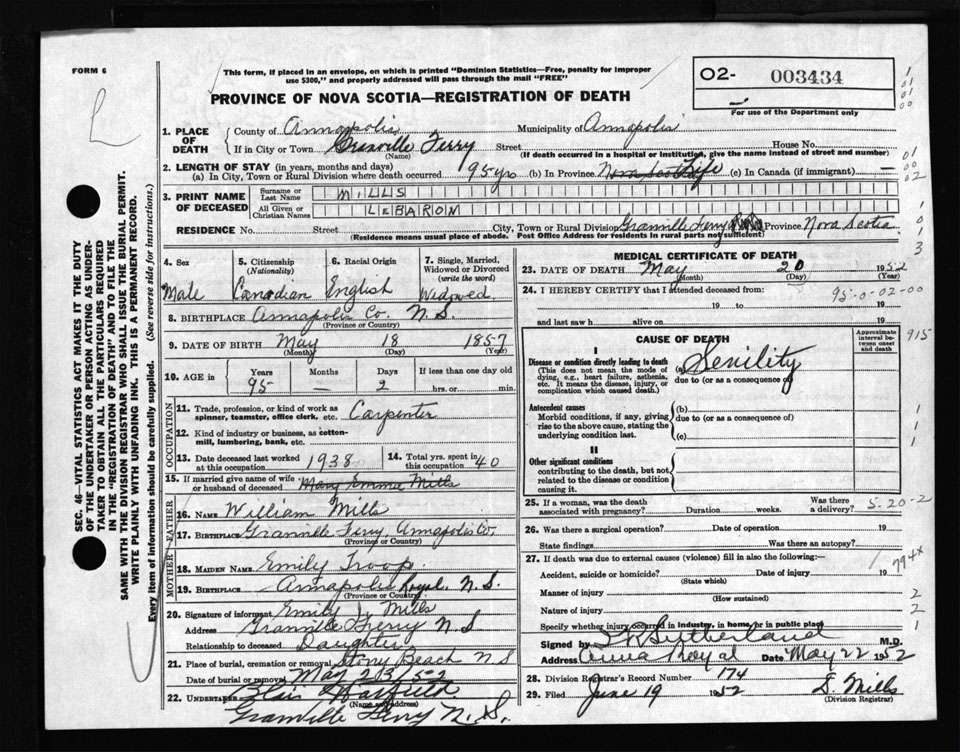 FORM 6
This form, if placed in an envelope, on which is printed "Dominion Statistics—Free, penalty for improper
use $300," and properly addressed will pass through the mail "FREE"
PROVINCE OF NOVA SCOTIA—REGISTRATION OF DEATH
02- 003434
For use of the Department only
1. PLACE OF DEATH
County of Annapolis Municipality of Annapolis
If in City or Town Granville Ferry Street House No.
(Name) (If death occurred in a hospital or institution, give the name instead of street and number)
2. LENGTH OF STAY (in years, months and days)
(a) In City, Town or Rural Division where death occurred 95 yrs (b) In Province Life (c) In Canada (if immigrant)
3. PRINT NAME OF DECEASED
Surname or Last Name MILLS
All Given or Christian Names LEBARON
RESIDENCE No. Street City, Town or Rural Division Granville Ferry Province Nova Scotia
(Residence means usual place of abode. Post Office Address for residents in rural parts not sufficient)
4. Sex
Male
5. Citizenship
(Nationality)
Canadian
6. Racial Origin
English
7. Single, Married, Widowed or Divorced
(write the word)
Widowed
8. BIRTHPLACE Annapolis Co. N.S.
(Province or Country)
9. DATE OF BIRTH May 18 1857
(Month) (Day) (Year)
10. AGE in Years Months Days If less than one day old
95 — 2 hrs. or min.
OCCUPATION
11. Trade, profession, or kind of work as spinner, teamster, office clerk, etc. Carpenter
12. Kind of industry or business, as cotton-mill, lumbering, bank, etc.
13. Date deceased last worked at this occupation 1938
14. Total yrs. spent in this occupation 40
15. If married give name of wife or husband of deceased Mary Emma Mills
FATHER
16. NAME William Mills
17. BIRTHPLACE Granville Ferry, Annapolis Co.
(Province or Country)
MOTHER
18. MAIDEN NAME Emily Troop
19. BIRTHPLACE Annapolis Royal N.S.
(Province or Country)
20. Signature of informant Emily J. Mills
Address Granville Ferry N S
Relationship to deceased Daughter
21. Place of burial, cremation or removal Stony Beach N S
Date of burial or removal May 23/52
22. UNDERTAKER
(Name and address)
Granville Ferry N.S.
MEDICAL CERTIFICATE OF DEATH
23. DATE OF DEATH May 20 1952
(Month) (Day)
24. I HEREBY CERTIFY that I attended deceased from:
95-0-02-00
19 to 19
and last saw h alive on 19
CAUSE OF DEATH
Approximate interval between onset and death
915
I
Disease or condition directly leading to death
(This does not mean the mode of dying, e.g., heart failure, asthenia, etc. It means the disease, injury, or complication which caused death.)
(a) Senility
due to (or as a consequence of)
Antecedent causes
Morbid conditions, if any, giving rise to the above cause, stating the underlying condition last.
(b)
due to (or as a consequence of)
(c)
II
Other significant conditions
contributing to the death, but not related to the disease or condition causing it.
25. If a woman, was the death associated with pregnancy? Duration weeks. Was there a delivery?
5-20-2
26. Was there a surgical operation? Date of operation 19
State findings Was there an autopsy?
27. If death was due to external causes (violence) fill in also the following:—
794x
Accident, suicide or homicide? Date of injury 19
(State which)
Manner of injury
(How sustained)
Nature of injury
Specify whether injury occurred in industry, in home, or in public place
Signed by Sutherland M.D.
Address Anna Royal Date May 22 1952
28. Division Registrar's Record Number 174
29. Filed June 19 1952 S. Mills
(Division Registrar)
SEC. 46—VITAL STATISTICS ACT MAKES IT THE DUTY
OF THE UNDERTAKER OR PERSON ACTING AS UNDER-
TAKER TO OBTAIN ALL THE PARTICULARS REQUIRED
IN THE "REGISTRATION OF DEATH" AND TO FILE THE
SAME WITH THE DIVISION REGISTRAR WHO SHALL ISSUE THE BURIAL PERMIT.
WRITE PLAINLY WITH UNFADING INK. THIS IS A PERMANENT RECORD.
Every item of information should be carefully supplied. (See reverse side for instructions.)